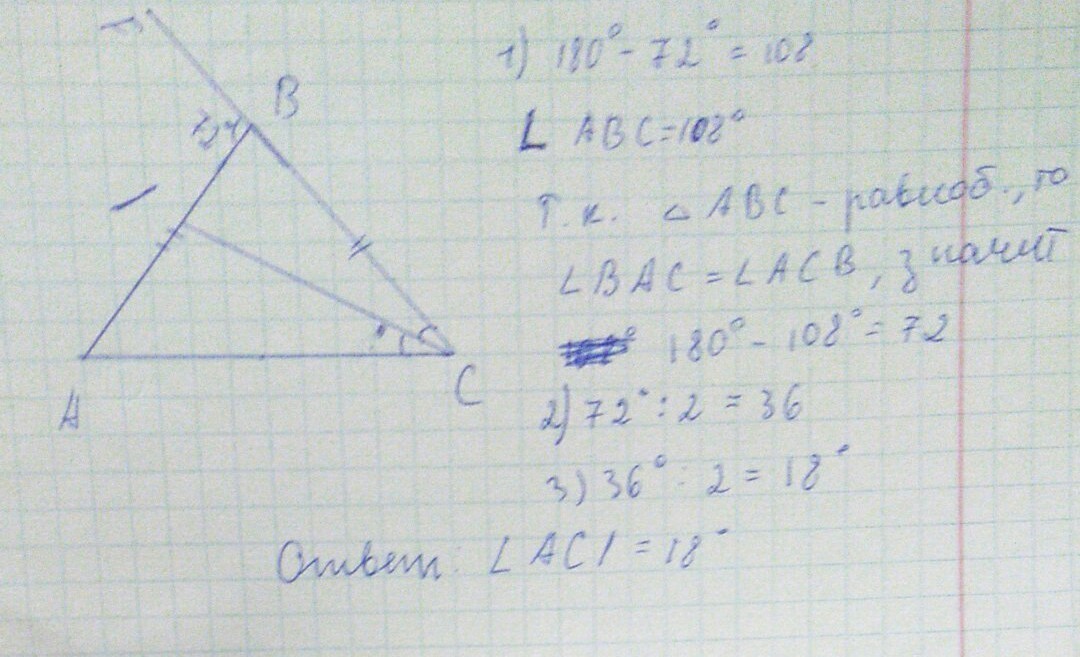 B
72°
A
C
1) 180° - 72° = 108
∠ ABC = 108°
Т.к. △ ABC - равноб., то
∠BAC = ∠ACB, значит
180° - 108° = 72
2) 72° : 2 = 36
3) 36° : 2 = 18°
Ответ: ∠ AC1 = 18°